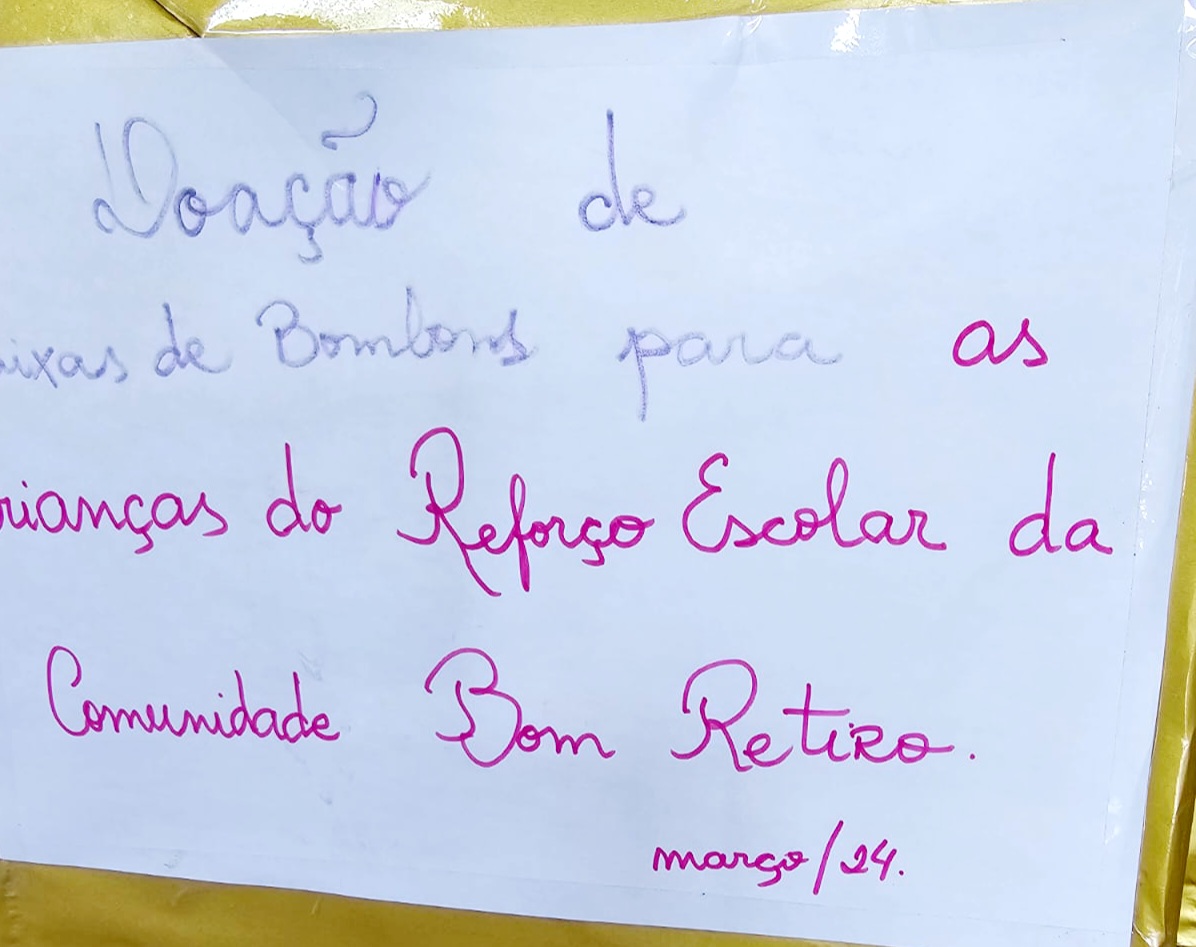 Doação de
aixas de Bombons para as
rianças do Reforço Escolar da
Comunidade Bom Retiro.
março/24.